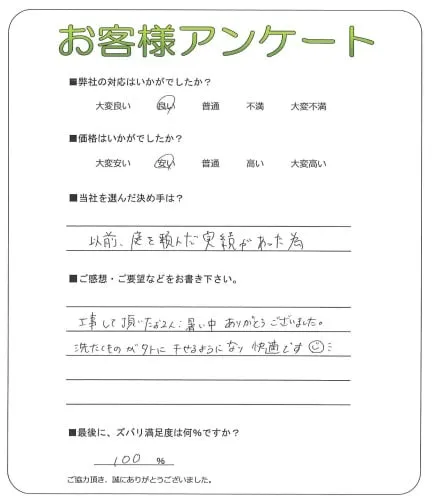 お客様アンケート
■弊社の対応はいかがでしたか？
大変良い 良い 普通 不満 大変不満
■価格はいかがでしたか？
大変安い 安い 普通 高い 大変高い
■当社を選んだ決め手は？
以前、庭を頼んだ実績があった為
■ご感想・ご要望などをお書き下さい。
工事して頂いたお2人：暑い中 ありがとうございました。
洗たくものが外に干せるようになり 快適です
■最後に、ズバリ満足度は何％ですか？
100 ％
ご協力頂き、誠にありがとうございました。